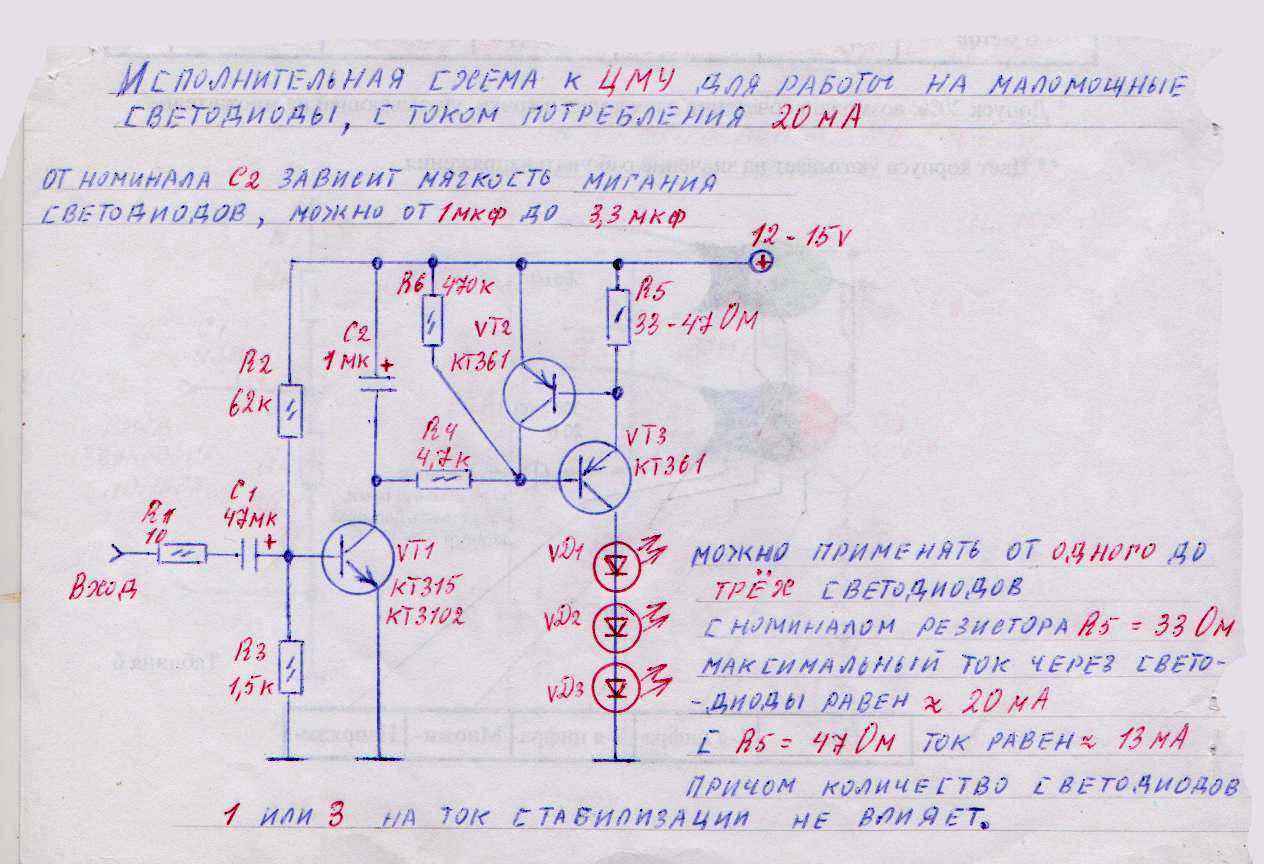 ИСПОЛНИТЕЛЬНАЯ СХЕМА К ЦМУ ДЛЯ РАБОТЫ НА МАЛОМОЩНЫЕ
СВЕТОДИОДЫ, С ТОКОМ ПОТРЕБЛЕНИЯ 20 мА
ОТ НОМИНАЛА С2 ЗАВИСИТ МЯГКОСТЬ МИГАНИЯ
СВЕТОДИОДОВ, МОЖНО ОТ 1мкф ДО 3,3 мкф
12 - 15V
+
R6 470к
R5
33 - 47 Ом
C2
1 МК +
VT2
КТ361
R2
62к
R4
4,7к
VT3
КТ361
C1
47МК
+
R1
10
ВХОД
VT1
КТ315
КТ3102
R3
1,5к
VD1
VD2
VD3
МОЖНО ПРИМЕНЯТЬ ОТ ОДНОГО ДО
ТРЁХ СВЕТОДИОДОВ
С НОМИНАЛОМ РЕЗИСТОРА R5 = 33 Ом
МАКСИМАЛЬНЫЙ ТОК ЧЕРЕЗ СВЕТО-
-ДИОДЫ РАВЕН ≈ 20 мА
С R5 = 47 Ом ТОК РАВЕН ≈ 13 мА
ПРИЧОМ КОЛИЧЕСТВО СВЕТОДИОДОВ
1 ИЛИ 3 НА ТОК СТАБИЛИЗАЦИИ НЕ ВЛИЯЕТ.